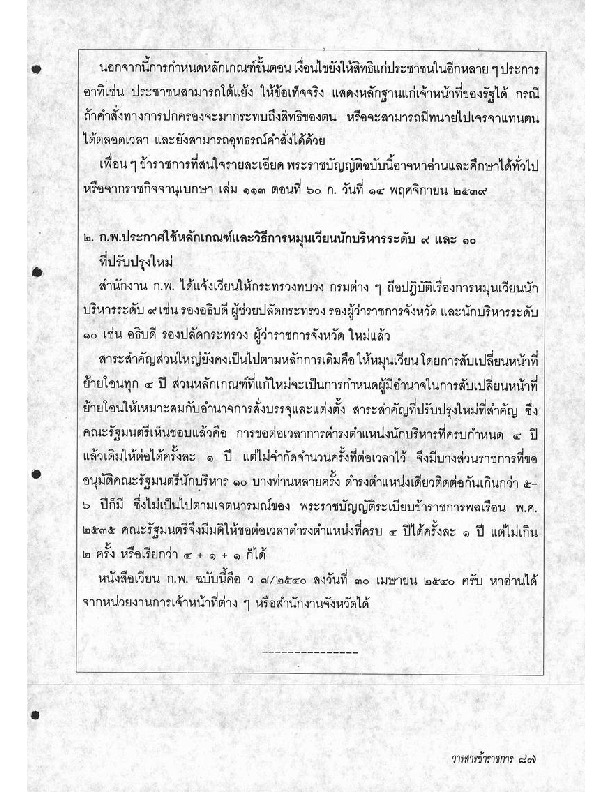 นอกจากนี้การกำหนดหลักเกณฑ์ขั้นตอน เงื่อนไขยังให้สิทธิแก่ประชาชนในอีกหลาย ๆ ประการ
อาทิเช่น ประชาชนสามารถโต้แย้ง ให้ข้อเท็จจริง แสดงหลักฐานแก่เจ้าหน้าที่ของรัฐได้ กรณี
ถ้าคำสั่งทางการปกครองจะมากระทบถึงสิทธิของตน หรือจะสามารถมีทนายไปเจรจาแทนตน
ได้ตลอดเวลา และยังสามารถอุทธรณ์คำสั่งได้ด้วย
เพื่อน ๆ ข้าราชการที่สนใจรายละเอียด พระราชบัญญัติฉบับนี้อาจหาอ่านและศึกษาได้ทั่วไป
หรือจากราชกิจจานุเบกษา เล่ม ๑๑๓ ตอนที่ ๖๐ ก. วันที่ ๑๔ พฤศจิกายน ๒๕๓๙
๒. ก.พ.ประกาศใช้หลักเกณฑ์และวิธีการหมุนเวียนนักบริหารระดับ ๙ และ ๑๐
ที่ปรับปรุงใหม่
สำนักงาน ก.พ. ได้แจ้งเวียนให้กระทรวงทบวง กรมต่าง ๆ ถือปฏิบัติเรื่องการหมุนเวียนนัก
บริหารระดับ ๙ เช่น รองอธิบดี ผู้ช่วยปลัดกระทรวง รองผู้ว่าราชการจังหวัด และนักบริหารระดับ
๑๐ เช่น อธิบดี รองปลัดกระทรวง ผู้ว่าราชการจังหวัด ใหม่แล้ว
สาระสำคัญส่วนใหญ่ยังคงเป็นไปตามหลักการเดิมคือ ให้หมุนเวียน โดยการสับเปลี่ยนหน้าที่
ย้ายโอนทุก ๔ ปี ส่วนหลักเกณฑ์ที่แก้ใหม่จะเป็นการกำหนดผู้มีอำนาจในการสับเปลี่ยนหน้าที่
ย้ายโอนให้เหมาะสมกับอำนาจการสั่งบรรจุและแต่งตั้ง สาระสำคัญที่ปรับปรุงใหม่ที่สำคัญ ซึ่ง
คณะรัฐมนตรีเห็นชอบแล้วคือ การขอต่อเวลาการดำรงตำแหน่งนักบริหารที่ครบกำหนด ๔ ปี
แล้วเดิมให้ต่อได้ครั้งละ ๑ ปี แต่ไม่จำกัดจำนวนครั้งที่ต่อเวลาไว้ จึงมีบางส่วนราชการที่ขอ
อนุมัติคณะรัฐมนตรีนักบริหาร ๑๐ บางท่านหลายครั้ง ดำรงตำแหน่งเดียวติดต่อกันเกินกว่า ๕-
๖ ปีก็มี ซึ่งไม่เป็นไปตามเจตนารมณ์ของ พระราชบัญญัติระเบียบข้าราชการพลเรือน พ.ศ.
๒๕๓๕ คณะรัฐมนตรีจึงมีมติให้ขอต่อเวลาดำรงตำแหน่งที่ครบ ๔ ปีได้ครั้งละ ๑ ปี แต่ไม่เกิน
๒ ครั้ง หรือเรียกว่า ๔ + ๑ + ๑ ก็ได้
หนังสือเวียน ก.พ. ฉบับนี้คือ ว ๗/๒๕๔๐ ลงวันที่ ๓๐ เมษายน ๒๕๔๐ ครับ หาอ่านได้
จากหน่วยงานการเจ้าหน้าที่ต่าง ๆ หรือสำนักงานจังหวัดได้
---------------
วารสารข้าราชการ ๘๗